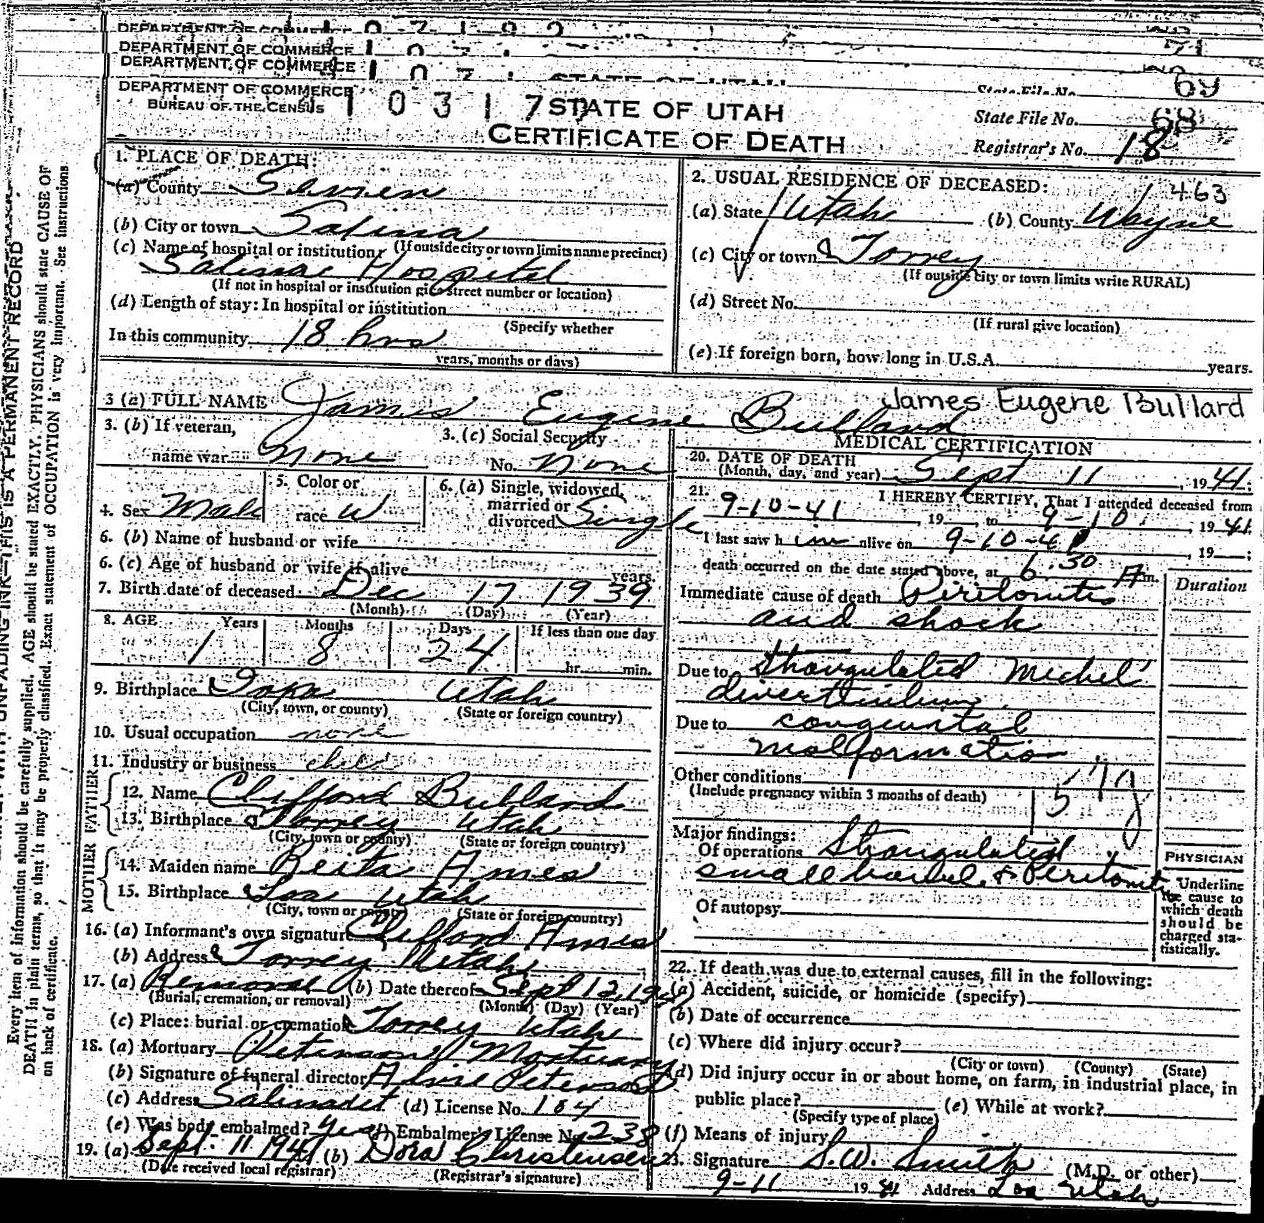 DEPARTMENT OF COMMERCE
DEPARTMENT OF COMMERCE
DEPARTMENT OF COMMERCE
71
69
DEPARTMENT OF COMMERCE
BUREAU OF THE CENSUS
STATE OF UTAH
CERTIFICATE OF DEATH
State File No. 68
Registrar's No. 18
1. PLACE OF DEATH:
(a) County Sevier
(b) City or town Salina
(If outside city or town limits name precinct)
(c) Name of hospital or institution:
Salina Hospital
(If not in hospital or institution give street number or location)
(d) Length of stay: In hospital or institution
(Specify whether
In this community 18 hrs
years, months or days)
2. USUAL RESIDENCE OF DECEASED:
463
(a) State Utah (b) County Wayne
(c) City or town Torrey
(If outside city or town limits write RURAL)
(d) Street No.
(If rural give location)
(e) If foreign born, how long in U.S.A. years.
3 (a) FULL NAME James Eugene Bullard
James Eugene Bullard
3. (b) If veteran,
name war None
3. (c) Social Security
No. None
4. Sex Male
5. Color or
race W
6. (a) Single, widowed,
married or
divorced Single
6. (b) Name of husband or wife
6. (c) Age of husband or wife if alive years
7. Birth date of deceased Dec 17 1939
(Month) (Day) (Year)
8. AGE Years Months Days If less than one day
1 8 24 hr. min.
9. Birthplace Utah
(City, town, or county) (State or foreign country)
10. Usual occupation none
11. Industry or business
FATHER
12. Name Clifford Bullard
13. Birthplace Torrey Utah
(City, town or county) (State or foreign country)
MOTHER
14. Maiden name Ames
15. Birthplace Loa Utah
(City, town or county) (State or foreign country)
16. (a) Informant's own signature Clifford Ames
(b) Address Torrey Utah
17. (a) Removal (b) Date thereof Sept 12, 194
(Burial, cremation, or removal) (Month) (Day) (Year)
(c) Place: burial or cremation Torrey Utah
18. (a) Mortuary Mortuary
(b) Signature of funeral director
(c) Address (d) License No. 184
(e) Was body embalmed? yes (f) Embalmer's License No. 238
19. (a) Sept. 11 1941 (b) Dora Christensen
(Date received local registrar) (Registrar's signature)
MEDICAL CERTIFICATION
20. DATE OF DEATH
(Month, day, and year) Sept 11, 1941;
21. I HEREBY CERTIFY, That I attended deceased from
9-10-41, 19 to 9-10, 1941
I last saw him alive on 9-10-41, 19 ;
death occurred on the date stated above, at 6:30 A m.
Duration
Immediate cause of death Piritonitis
and shock
Due to Strangulated Michel
divertiulum
Due to congenital
malformation
Other conditions
(Include pregnancy within 3 months of death)
Major findings:
Of operations Strangulated
Of autopsy
PHYSICIAN
Underline
the cause to
which death
should be
charged sta-
tistically.
22. If death was due to external causes, fill in the following:
(a) Accident, suicide, or homicide (specify)
(b) Date of occurrence
(c) Where did injury occur?
(City or town) (County) (State)
(d) Did injury occur in or about home, on farm, in industrial place, in
public place? (e) While at work?
(Specify type of place)
(f) Means of injury
23. Signature S.W. Smith (M.D. or other)
9-11 1941 Address Loa Utah
THIS IS A PERMANENT RECORD
Every item of information should be carefully supplied. AGE should be stated EXACTLY. PHYSICIANS should state CAUSE OF
DEATH in plain terms, so that it may be properly classified. Exact statement of OCCUPATION is very important. See instructions
on back of certificate.